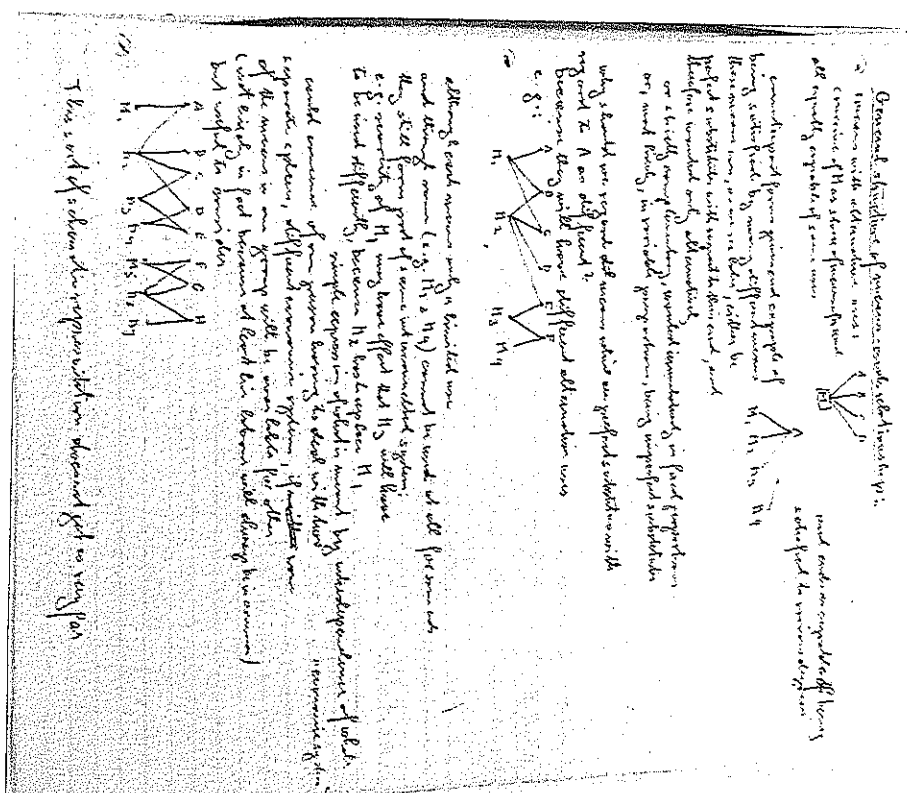 General structure of means-ends relationships:
a) means with alternative uses:
conceive of M as stock of
all equally capable of same uses
A B C
M
most ends are capable of being
satisfied to various degrees
could start from given end example of
being satisfied by many different means
these means can, as we see later, either be
perfect substitutes with regard to this end, and
therefore wanted only alternatively
or strictly complementary, wanted in fixed proportions
or, most likely, in variable proportions, being imperfect substitutes
A
M1 M2 M3 M4
why should we regard all means which are perfect substitutes with
regard to A as different?
because they will have different alternative uses
e.g.:
A B C D E F
M1 M2 M3 M4
although each means only a limited use
and though some (e.g. M1 & M4) cannot be used at all for same ends
they still form part of same interconnected system:
e.g. scarcity of M1 may have effect that M3 will have
to be used differently, because M2 has to replace M1
simple expression of what is meant by interdependence of whole
economic system
could conceive of one person having to deal with two
separate spheres, different economic systems, if none
of the means in one group will be available for other
(not likely in fact because at least his labour will always be in common)
but useful to consider
A B C D E F G H
M1 M2 M3 M4 M5 M6 M7
This sort of schematic representation does not get us very far